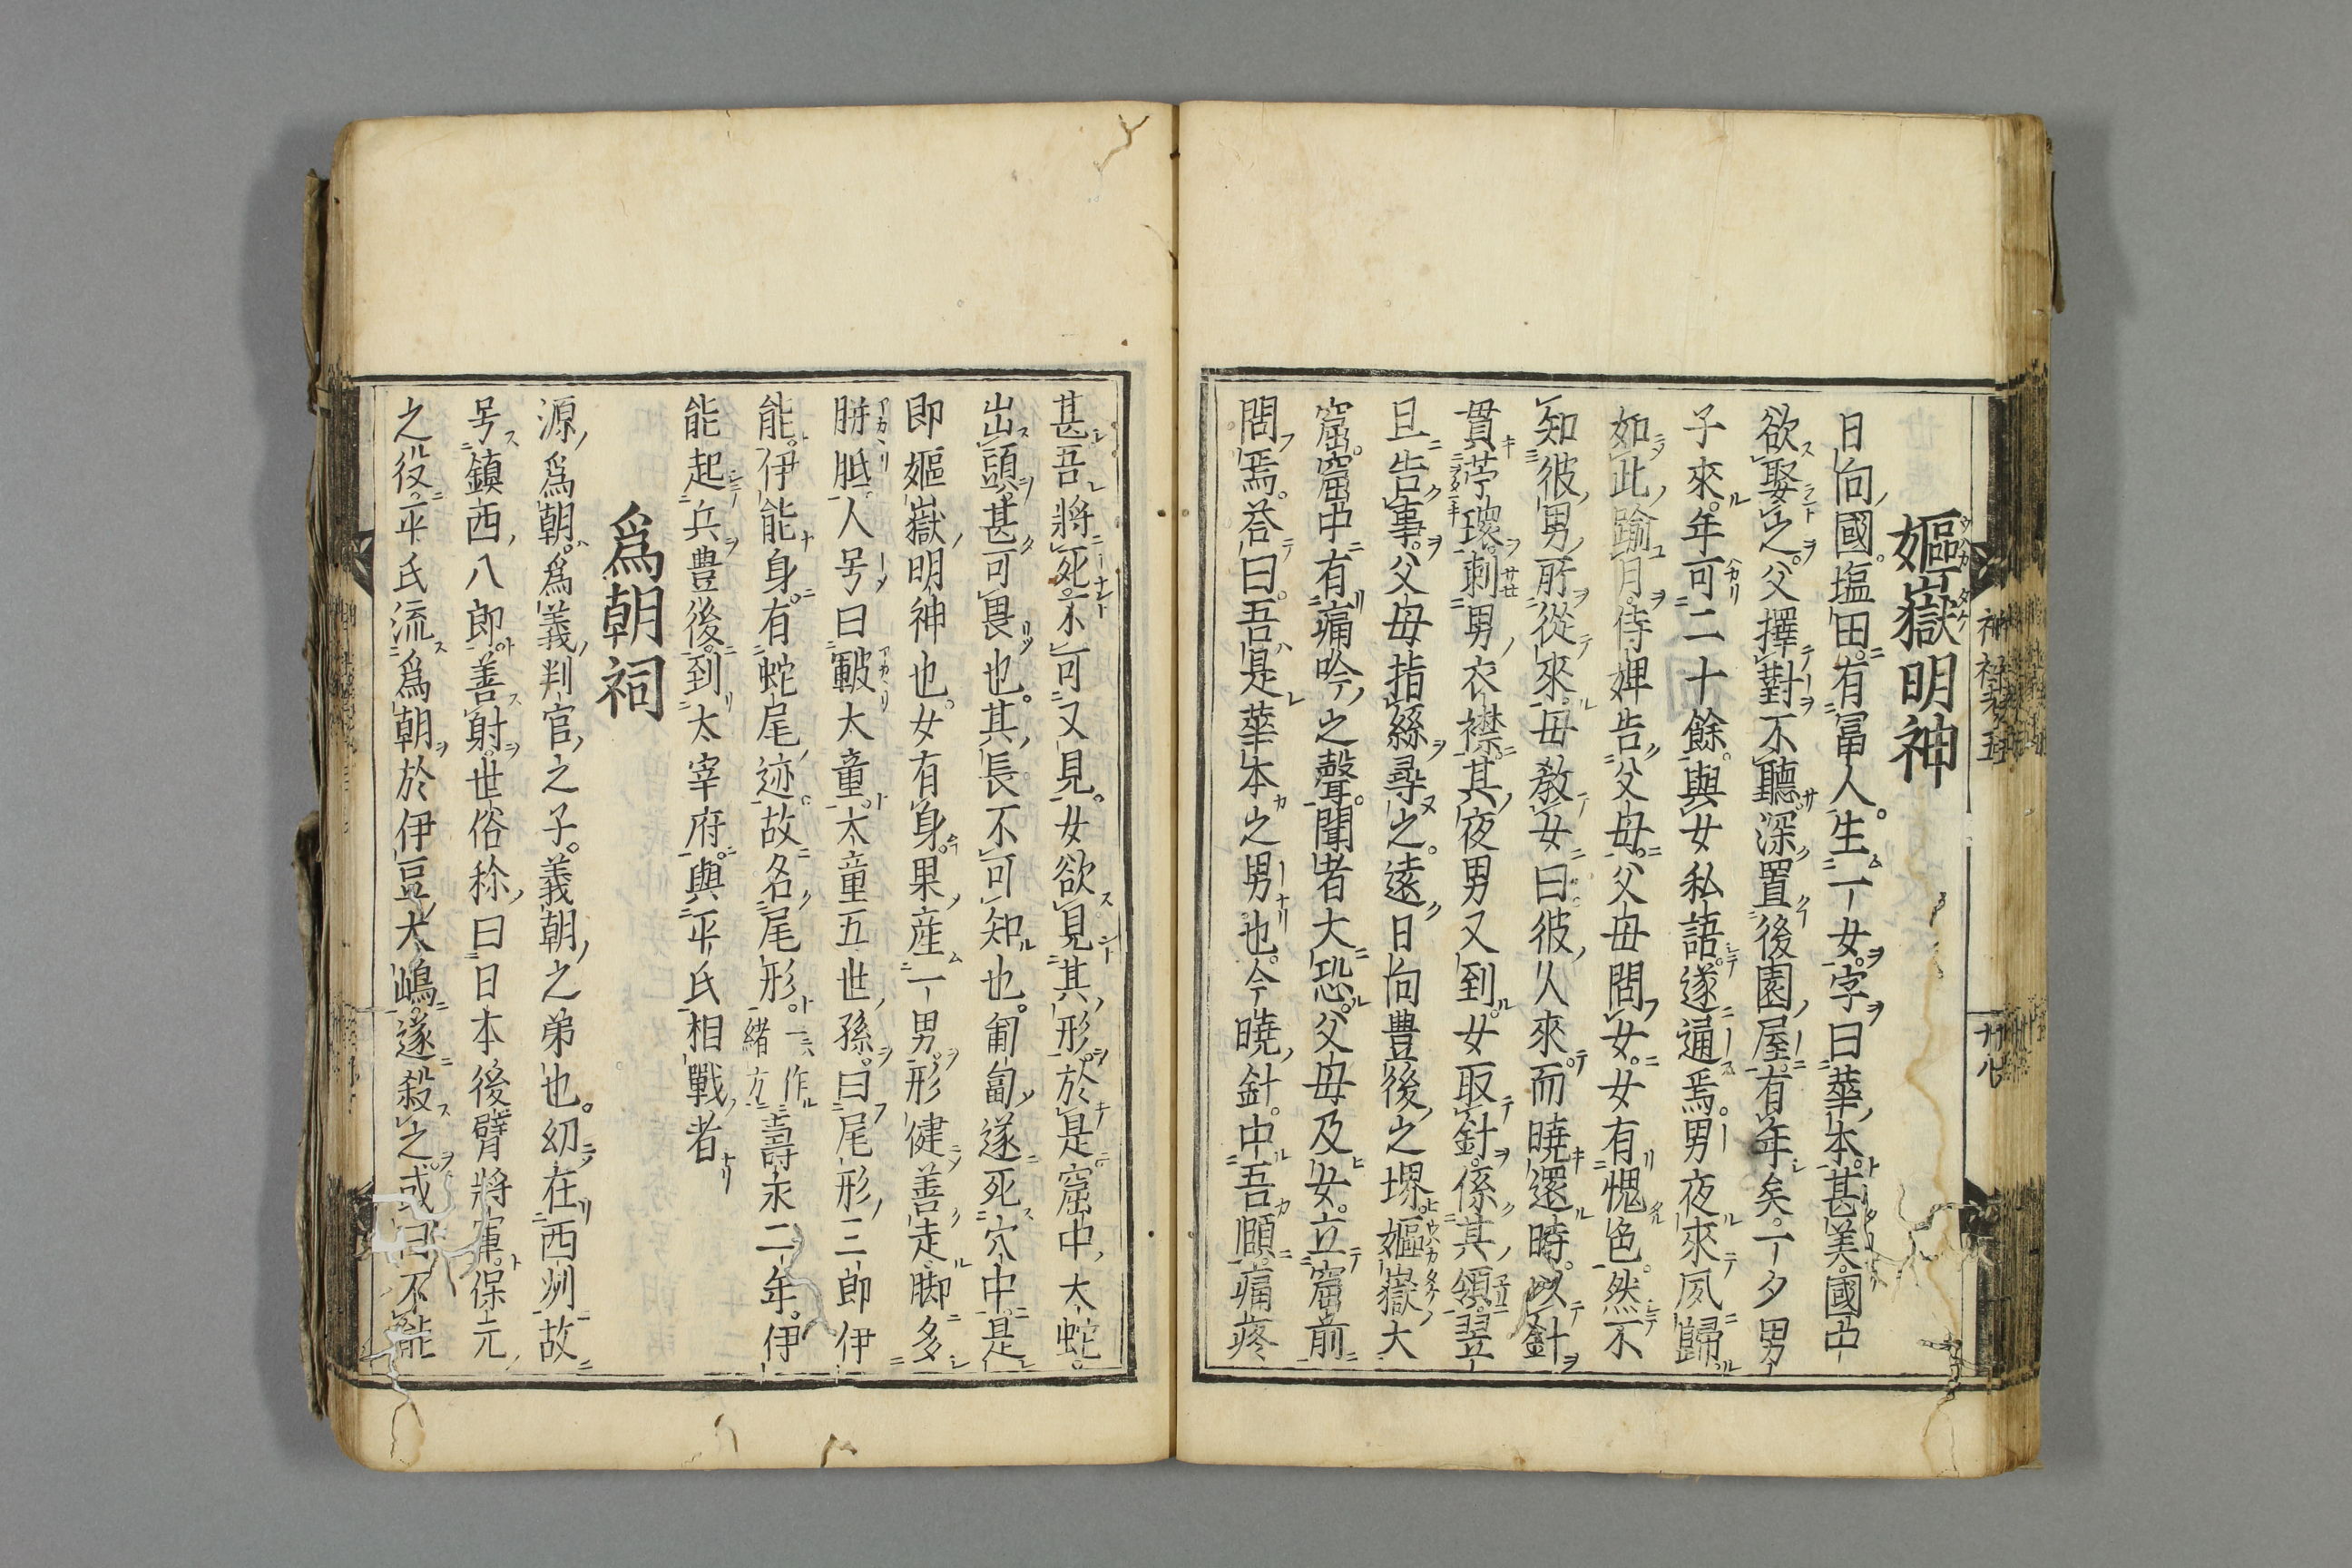 嫗嶽明神
日向國塩田有冨人生一女字曰華本甚美國中
欲娶之父擇對不聽深置後園屋有年矣一夕男
子來年可二十餘與女私語遂通焉男夜來夙歸
如此踰月侍婢告父母父母問女女有愧色然不
知彼男所從來母教女曰彼人來而曉還時以針
貫苧環刺男衣襟其夜男又到女取針係其領翌
旦告事父母指絲尋之遠日向豊後之堺嫗嶽大
窟窟中有痛吟之聲聞者大恐父母及女立窟前
問焉荅曰吾是華本之男也今曉針中吾頤痛疼
神社考五
廿八
甚吾將死不可又見女欲見其形於是窟中大蛇
出頭甚可畏也其長不可知也匍匐遂死穴中是
即嫗嶽明神也女有身果産一男形健善走脚多
胼胝人号曰皸太童太童五世孫曰尾形三郎伊
能伊能身有蛇尾迹故名尾形一作緒方壽永二年伊
能起兵豊後到太宰府與平氏相戰者
爲朝祠
源爲朝爲義判官之子義朝之弟也幼在西州故
号鎮西八郎善射世俗称曰日本後臂將軍保元
之役平氏流爲朝於伊豆大嶋遂殺之或曰不能